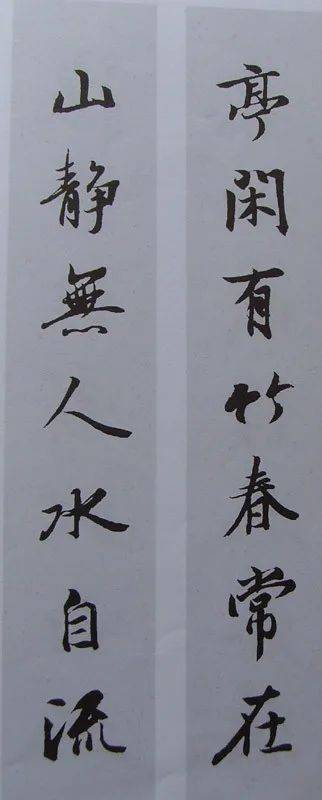 亭閑有竹春常在
山靜無人水自流